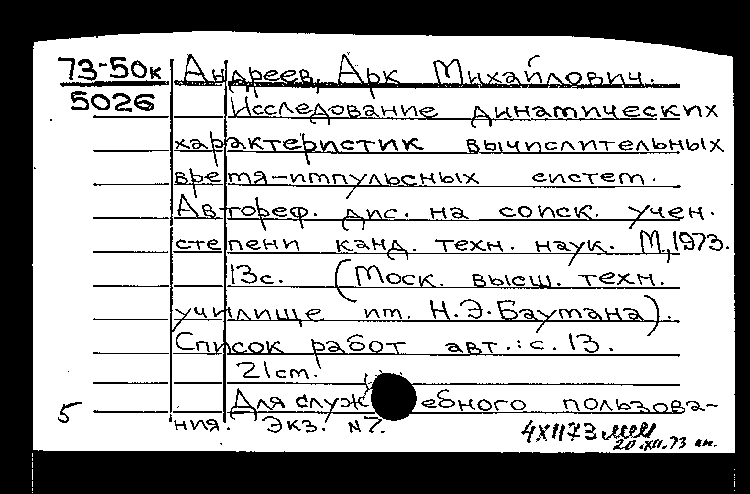 73-50к Андреев, Арк Михайлович.
5026 Исследование динамических
характеристик вычислительных
время-импульсных систем.
Автореф. дис. на соиск. учен.
степени канд. техн. наук. М, 1973.
13с. (Моск. высш. техн.
училище им. Н.Э.Баумана).
Список работ авт.: с. 13.
21см.
Для служебного пользова-
5 ния. Экз. №7.
4XII73
20.XII.73